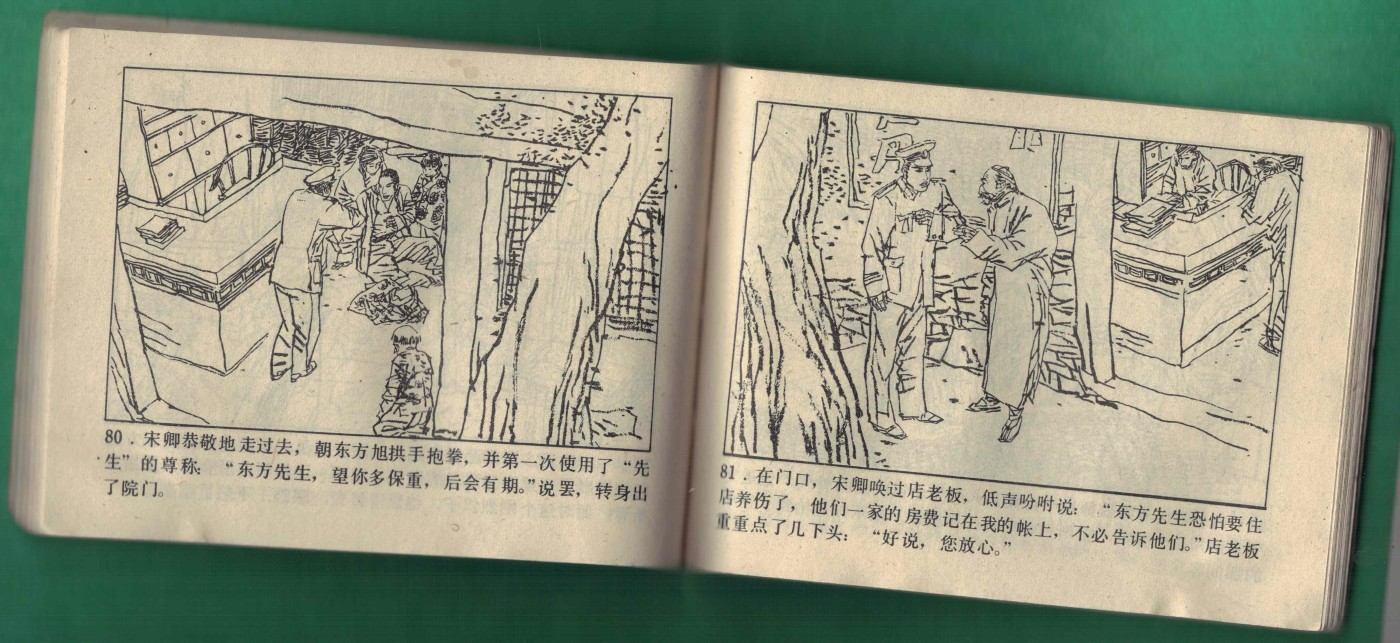 80．宋卿恭敬地走过去，朝东方旭拱手抱拳，并第一次使用了“先
生”的尊称：“东方先生，望你多保重，后会有期。”说罢，转身出
了院门。
81．在门口，宋卿唤过店老板，低声吩咐说：“东方先生恐怕要住
店养伤了，他们一家的房费记在我的帐上，不必告诉他们。”店老板
重重点了几下头：“好说，您放心。”